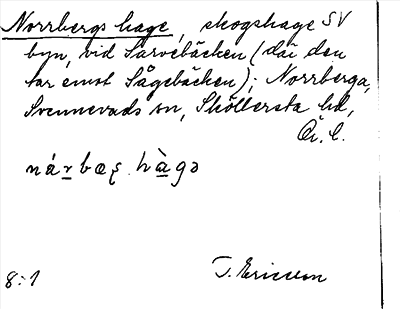 Norrbergs hage, skogshage SV
byn, vid Sarvebäcken (där den
tar emot Sågebäcken); Norrberga,
Svennevads sn, Sköllersta hd,
Ör. l.
hàgə
8:1 T. Ericsson